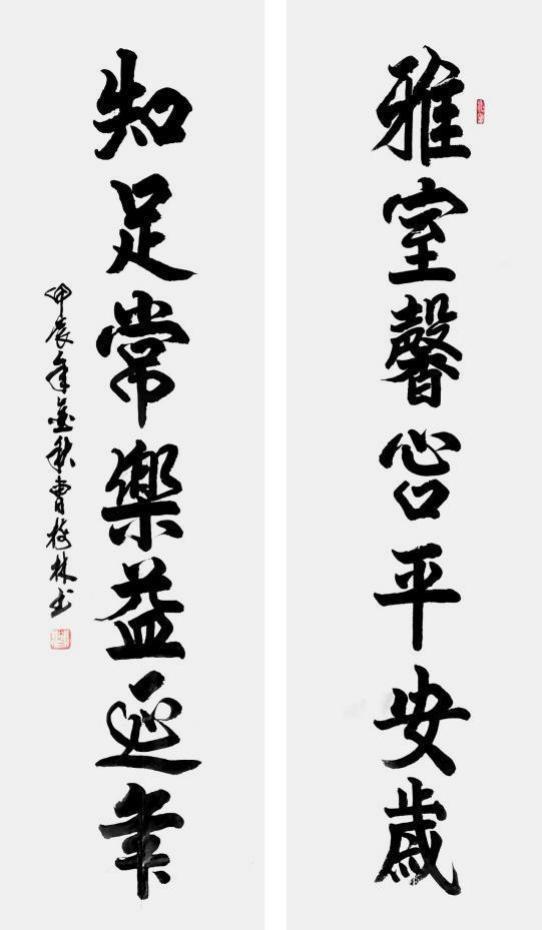 雅室馨平安歲
知足常樂益延年
甲辰年金秋曹林书